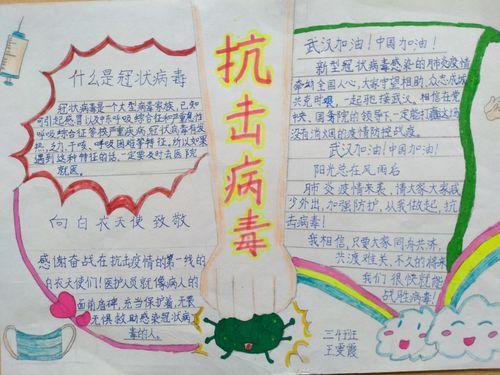 什么是冠状病毒
冠状病毒是一个大型病毒家族,已知
可引起感冒以及中东呼吸综合征和严重急性
呼吸综合征等较严重疾病,冠状病毒有发
热,乏力,干咳,呼吸困难等特征,所以如果
遇到这种特征的话,一定要及时去医院
就医。
向白衣天使致敬
感谢奋战在抗击疫情的第一线的
白衣天使们!医护人员就像病人的
无惧救助感染冠状病
毒的人。
抗击病毒
武汉加油!中国加油!
新型冠状病毒感染的肺炎疫情
牵动全国人心,大家守望相助,众志成城
共克时艰,一起驰援武汉,相信在党
中央、国务院的领导下,一定能打赢这场
没有消烟的疫情防控战疫。
武汉加油!中国加油!
阳光总在风雨后
肺炎疫情来袭,请大家大家减
少外出,加强防护,从我做起,抗
击病毒!
我相信,只要大家同舟共济,
共渡难关,不久的将来
我们很快就能
战胜病毒!
三4班
王雯霞